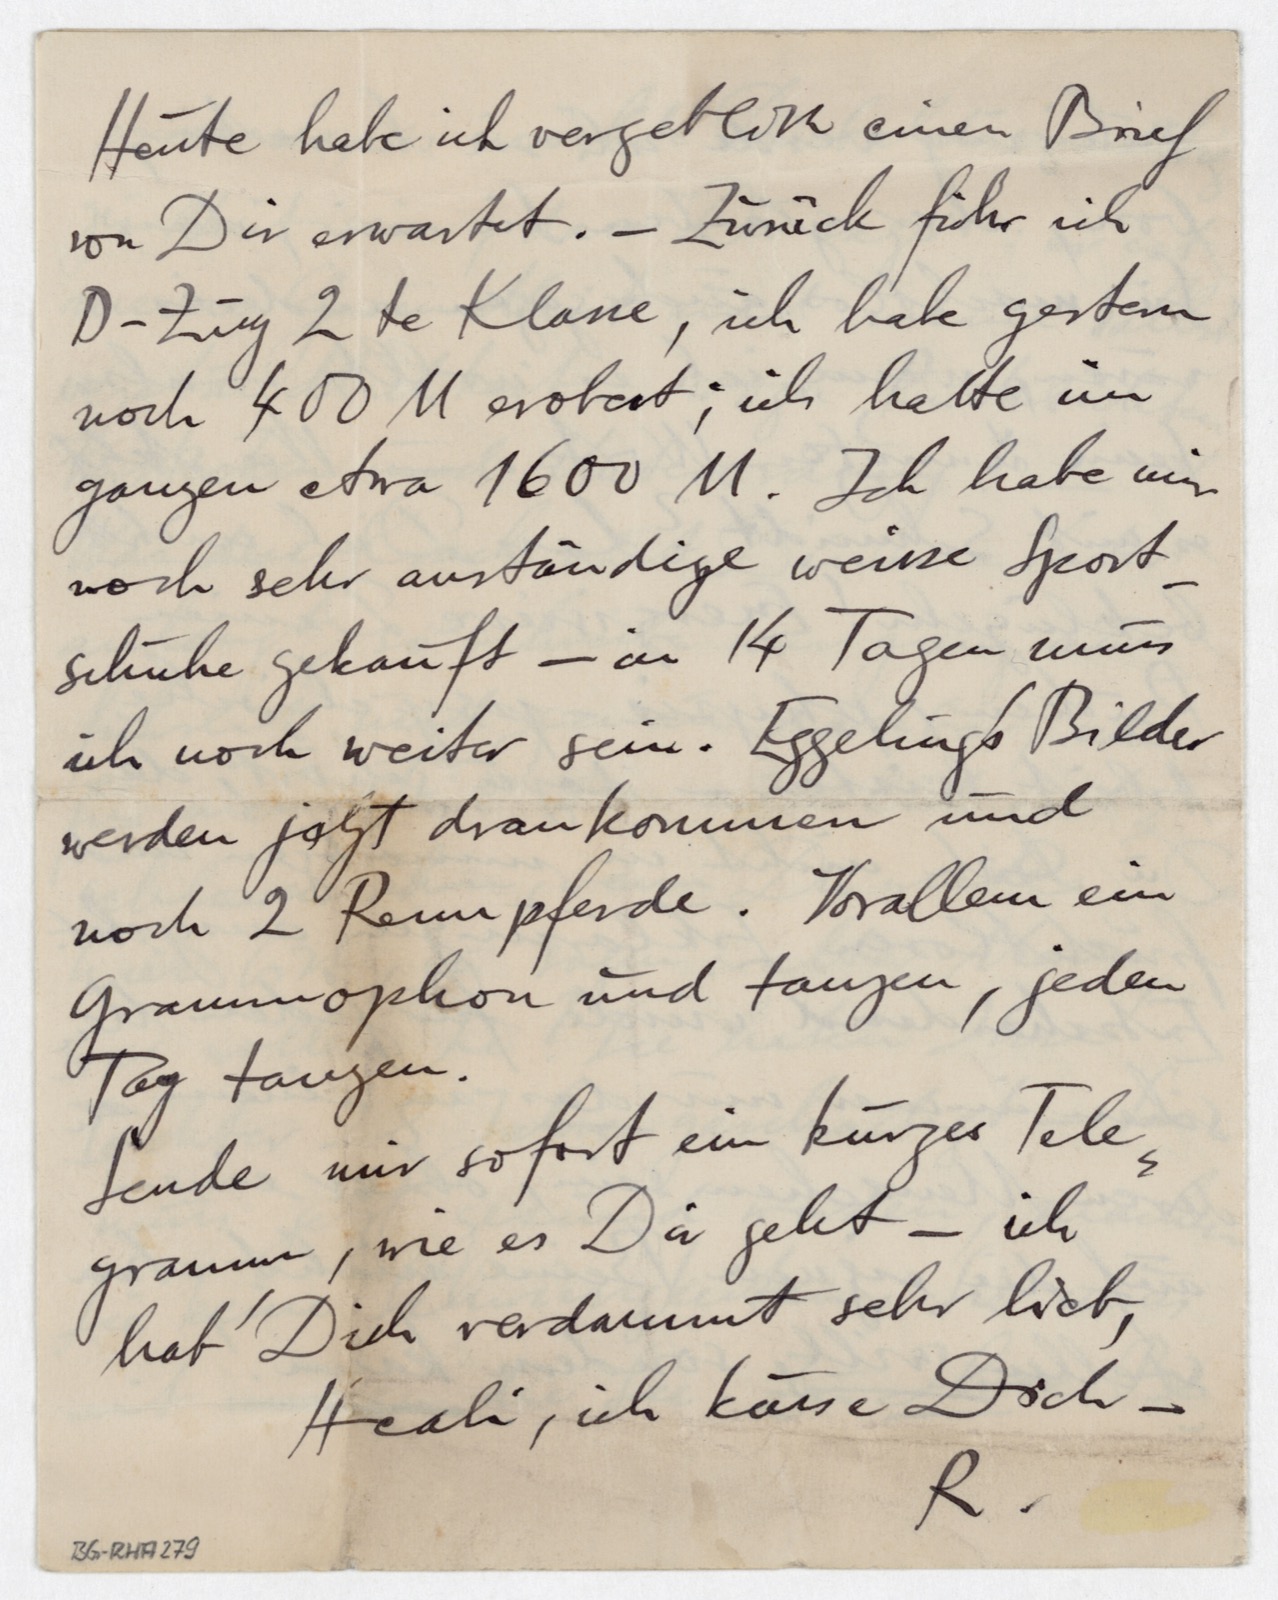 Heute habe ich vergeblich einen Brief
von Dir erwartet. – Zurück fuhr ich
D-Zug 2te Klasse, ich habe gestern
noch 400 M erobert; ich hatte im
ganzen etwa 1600 M. Ich habe mir
noch sehr anständige weisse Sport-
schuhe gekauft – in 14 Tagen muss
ich noch weiter sein. Eggeling's Bilder
werden jetzt drankommen und
noch 2 Rennpferde. Vorallem ein
Grammophon und tanzen, jeden
Tag tanzen.
Sende mir sofort ein kurzes Tele-
gramm, wie es Dir geht – ich
hab' Dich verdammt sehr lieb,
ich küsse Dich –
R.
BG-RHA 279